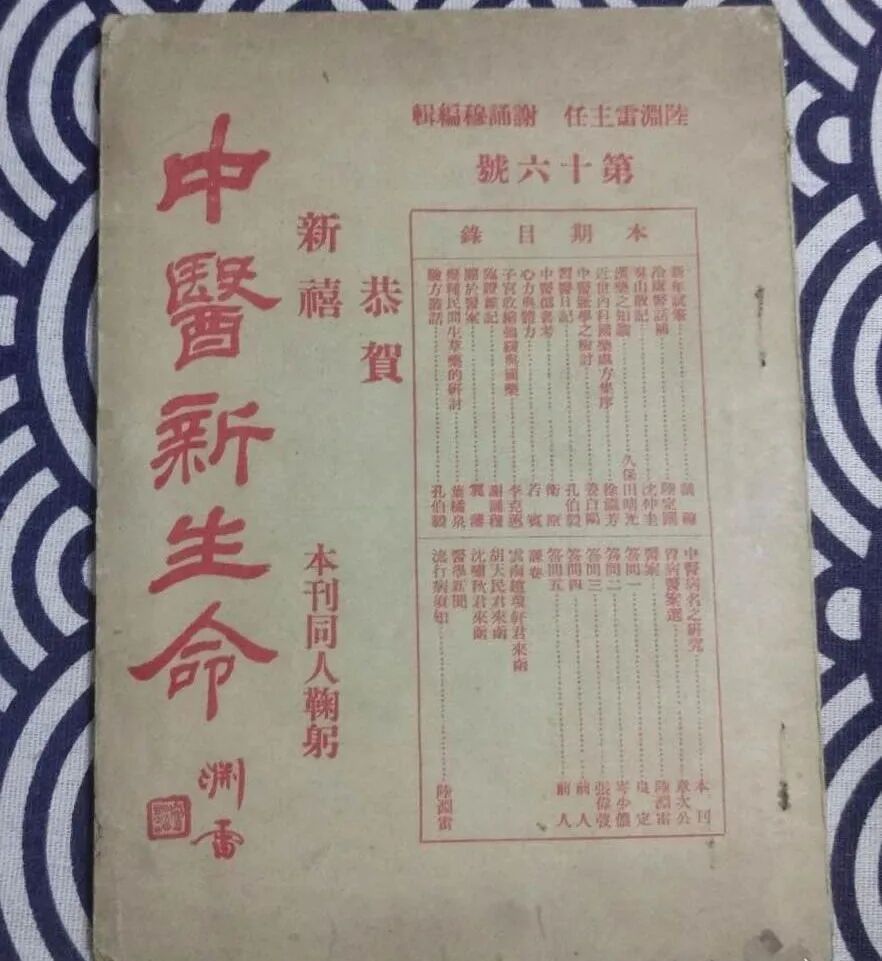 陸淵雷主任 謝誦穆編輯
第十六號
本期目錄
新年試筆
冷廬醫話補 陸定圃
吳山散記 沈仲圭
漢藥之知識 久保田晴光
近世內科國藥處方集序 徐瀛芳
中醫雜學之檢討 姜白鷗
習醫日記 孔伯毅
中醫偽書考 衛原
心方與體方 若賓
子宮收縮與國藥 李克蕙
臨證雜記 謝誦穆
關於醫案
民間生草藥的研討 葉橘泉
驗方叢話 孔伯毅
中醫病名之研究 本刊
胃病醫案選 章次公
醫案 陸淵雷
答問一
答問二 岑少儂
答問三 張偉發
答問四 前人
答問五 前人
課卷
雲南趙瓊軒君來函
胡天民君來函
沈嘯秋君來函
醫學新聞
流行病須知 陸淵雷
恭賀
新禧
本刊同人鞠躬
中醫新生命
淵雷